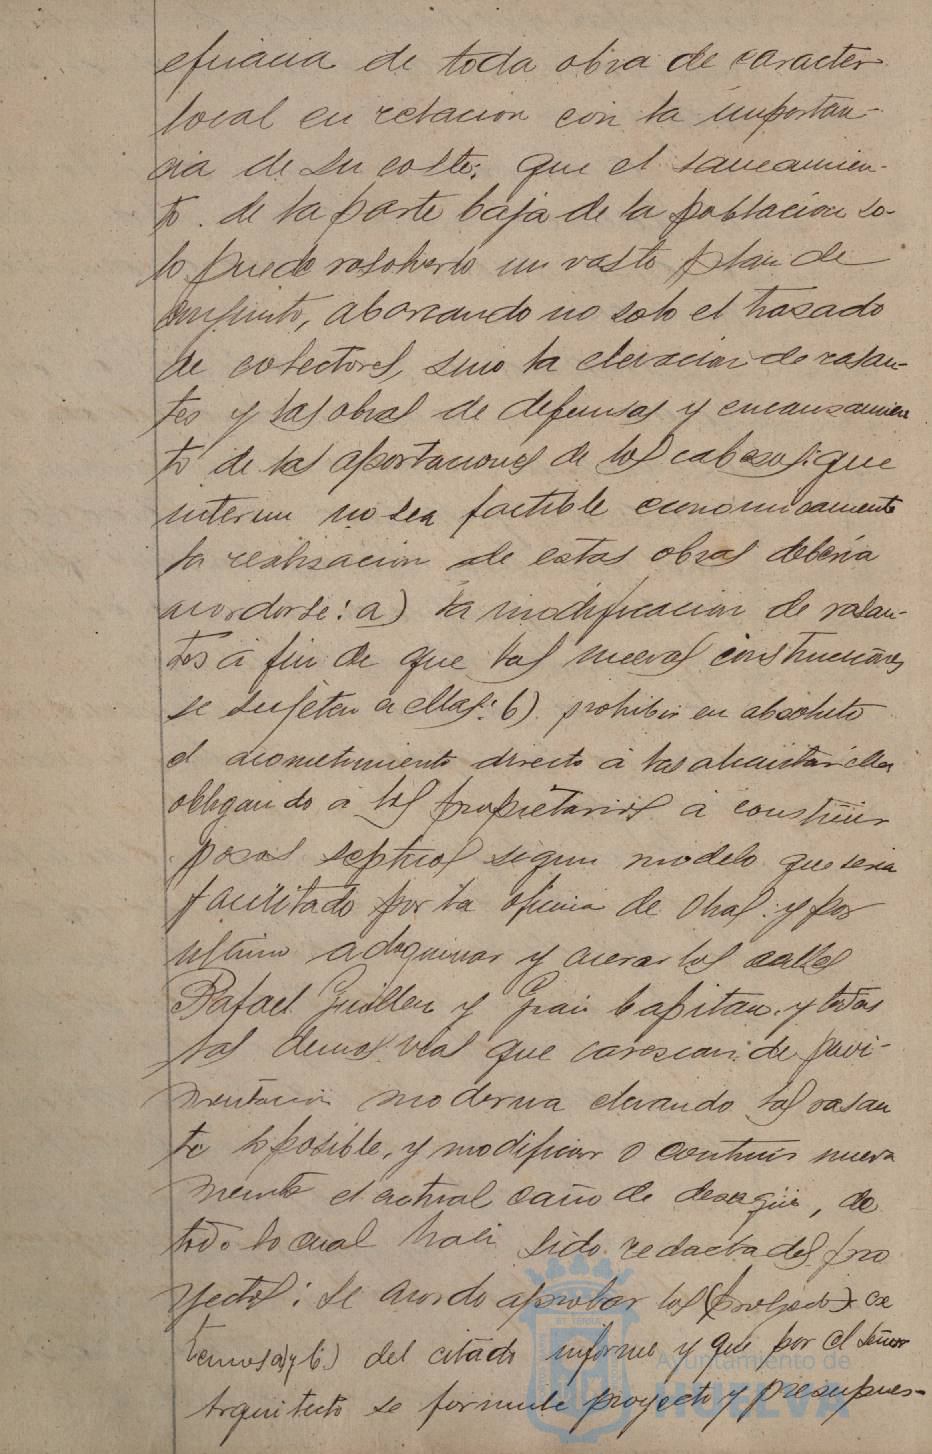 eficacia de toda obra de caracter
local en relacion con la importan-
cia de su coste; que el saneamien-
to de la parte baja de la poblacion so-
lo puede resolverlo un vasto plan de
conjunto, abarcando no solo el trazado
de colectores, sino la elevacion de rasan-
tes y las obras de defensas y encauzamien
to de las aportaciones de los cabezos: que
interin no sea factible economicamente
la realizacion de estas obras deberia
acordarse: a) la modificacion de rasan-
tes á fin de que las nuevas construcciones
se sujeten a ellas: b) prohibir en absoluto
el acometimiento directo á las alcantarillas
obligando á los propietarios á construir
pozos septicos segun modelo que seria
facilitado por la oficina de Obras: y por
ultimo adoquinar y acerar las calles
Rafael Guillen y Gran Capitan y todas
las demas vias que carezcan de pavi-
mentacion moderna elevando las rasan
te lo posible, y modificar o contruir nueva
mente el actual caño de desagüe, de
todo lo cual han sido redactados pro
yectos: se acordo aprobar los ex
tremos a) y b) del citado informe y que por el señor
Arquitecto se formule proyecto y presupues-
Ayuntamiento de
HUELVA